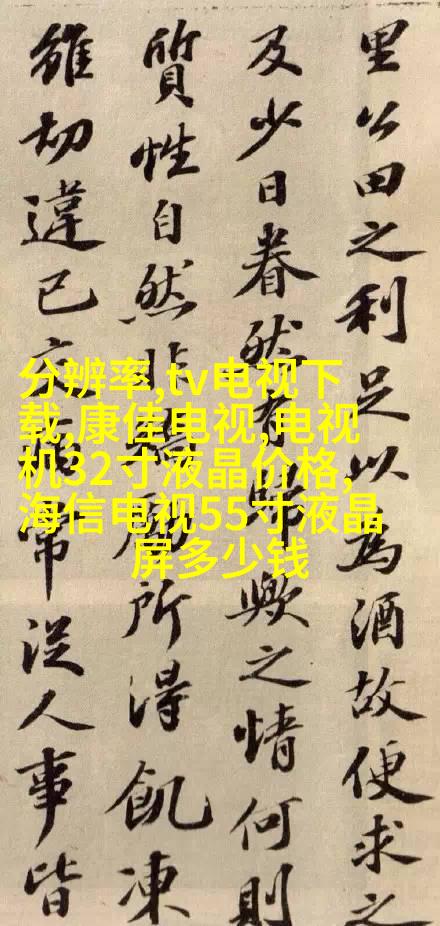 里公田之利足以為酒故便求之
及少日眷然有歸歟之情何則
質性自然非矯厲所得飢凍
雖切違己交病常從人事皆
分辨率,tv电视下
载,康佳电视,电视
机32寸液晶价格,
海信电视55寸液晶
屏多少钱